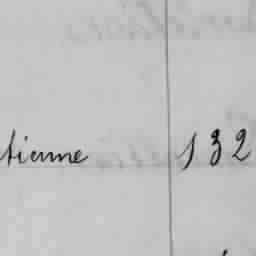 tienne 132